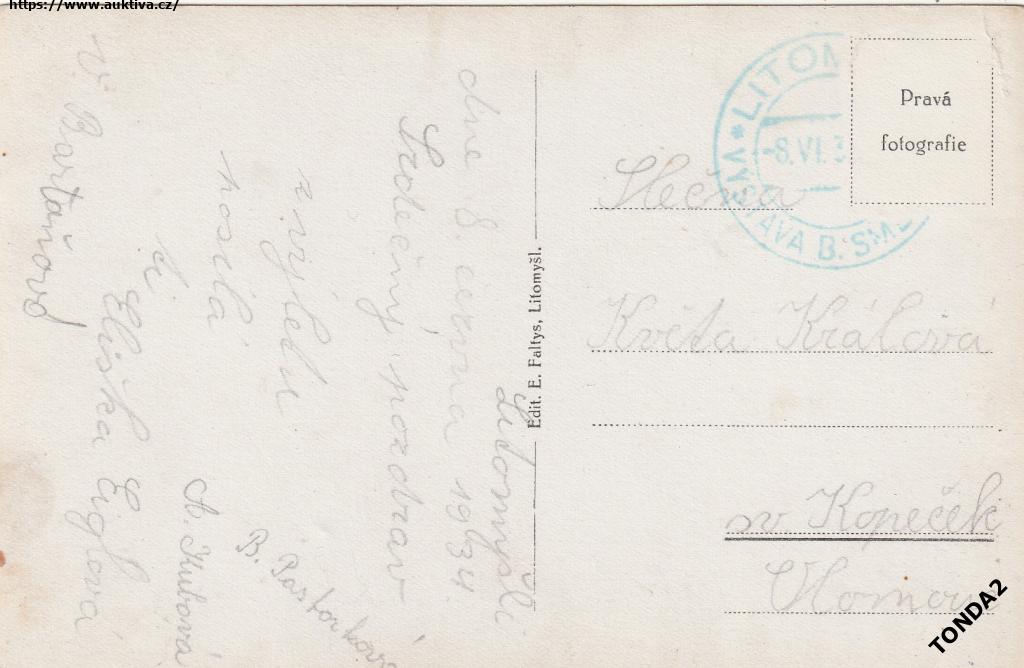 https://www.auktiva.cz/
Litomyšli
dne 8. června 1934.
Srdečný pozdrav
z výletu
posílá
Eliška Eiglová
A. Kubová
B. Pastorková
V. Bartaňová
Edit. E. Faltys, Litomyšl.
LITOM
-8.VI.3
VÝSTAVA B. SME
Pravá
fotografie
Slečna
Květa Králová
sv. Kopeček
Olomouc
TONDA2